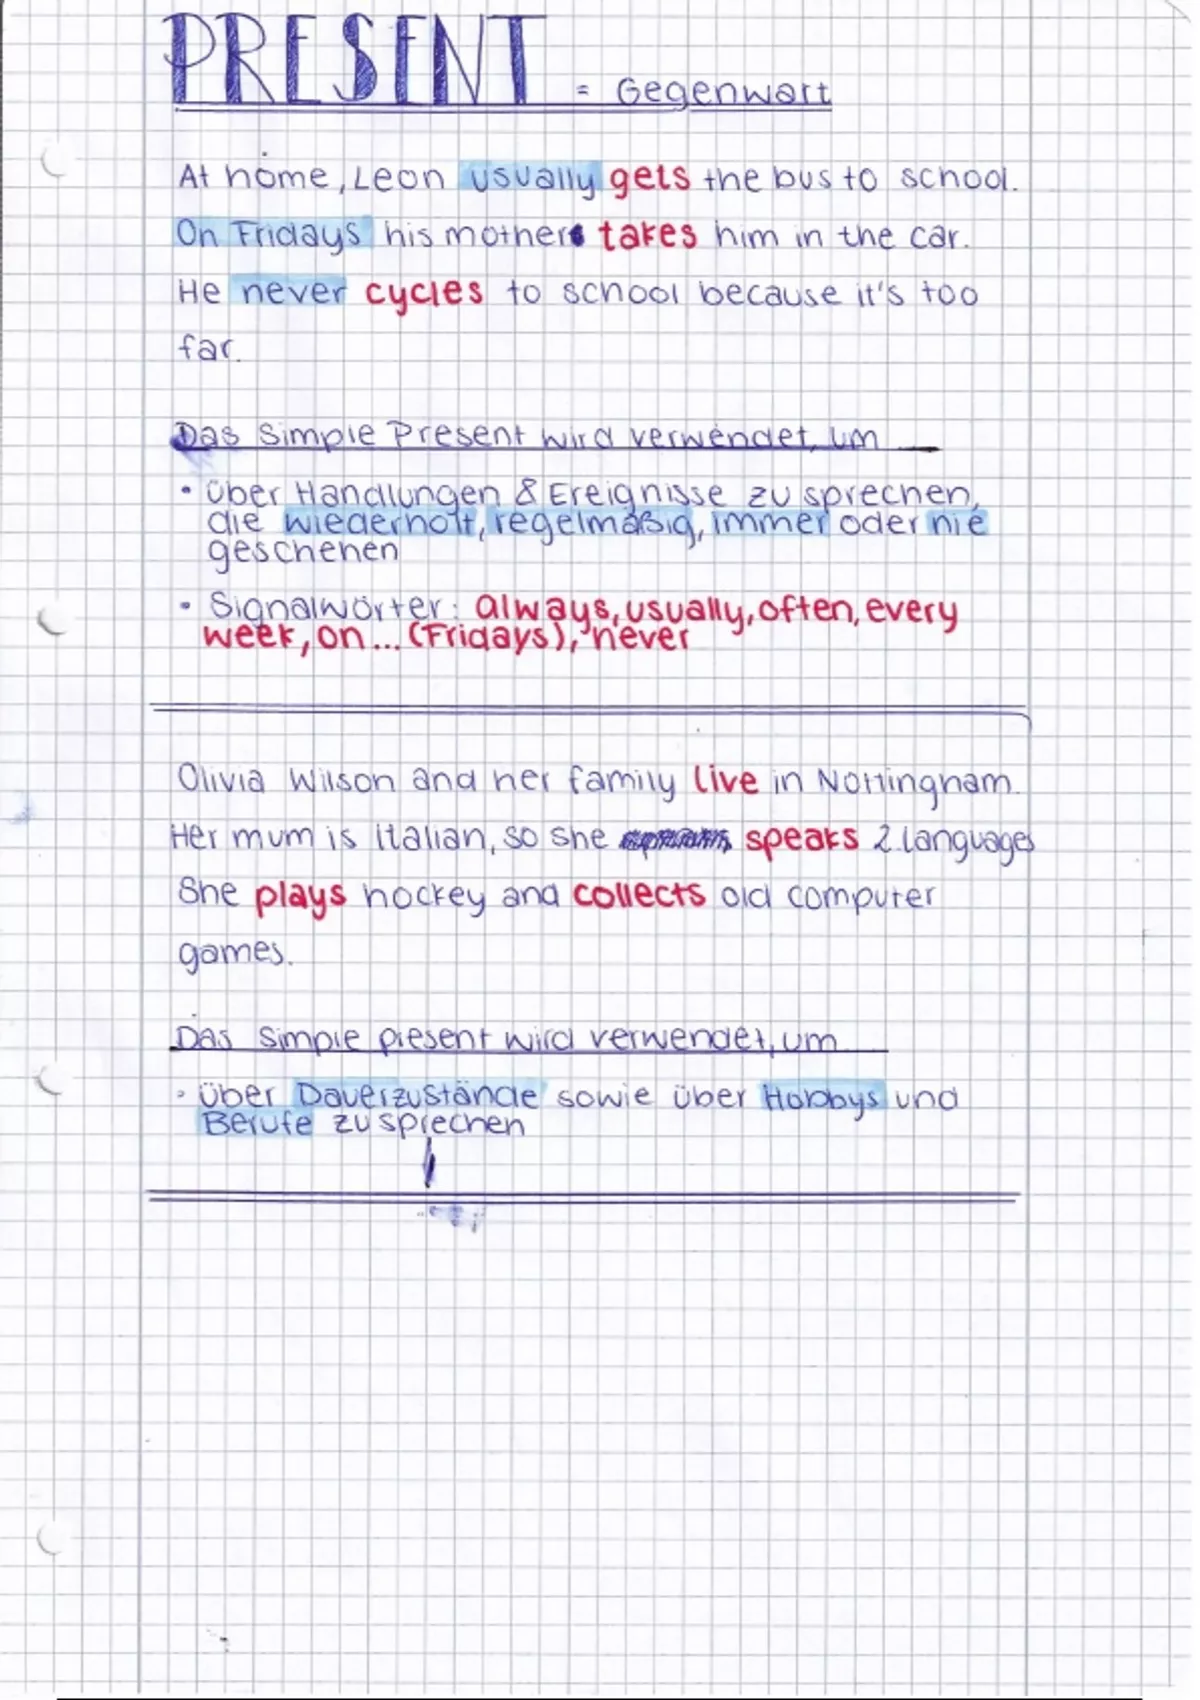 PRESENT = Gegenwart
At home, Leon usually gets the bus to school.
On Fridays his mother takes him in the car.
He never cycles to school because it's too
far.
Das Simple Present wird verwendet, um
• über Handlungen & Ereignisse zu sprechen,
die wiederholt, regelmäßig, immer oder nie
geschehen
• Signalwörter: always, usually, often, every
week, on... (Fridays), never
Olivia Wilson and her family live in Nottingham.
Her mum is Italian, so she speaks 2 languages
She plays hockey and collects old computer
games.
Das Simple present wird verwendet, um
• über Dauerzustände sowie über Hobbys und
Berufe zu sprechen